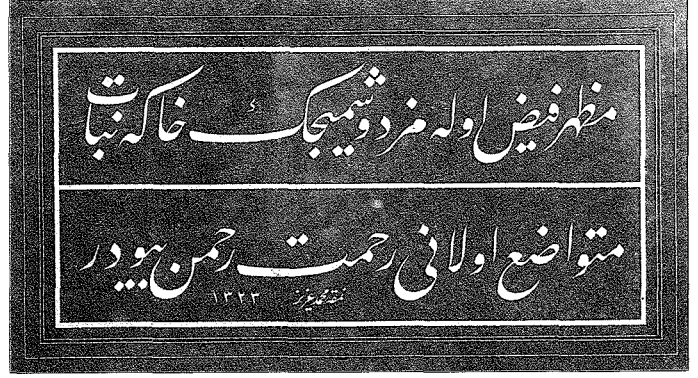 مظهر فيض اوله مز دوشميجك خاكه نبات
متواضع اولانى رحمت رحمن بيودر
نمقه محمد عزيز ١٣٢٣